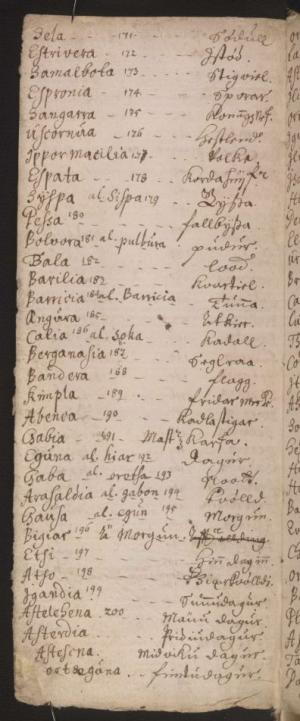 Sela - - 171 - - Södull
Estrivera - 172 Jstöd.
Samalbota 173 - - - Stigviel.
Espronia - 174 - - - Sporar
Sangarra - - 175 - -
Uscornua - 176 - Hestlend.
Jppormatilia 177 - - -
Espata - - - 178 - - Korda
Syspa al. Sispa 179 - - Byssa.
Pessa 180 - - - fallbyssa
Bolvora 181 al. pultura - pudur.
Bala 182 - - - Lood.
Barilia 183 - - - kvartiel.
Barricia 184 al. Barricia - Tunna.
Angura 185 - - - - Akkier.
Calia 186 al. Soka - - - Kadall
Berganasia 187 - - Seglraa.
Bandera 188 - - - flagg.
Kimpla - 189 - -
Abenea - - 190 - - Kadlastigar
Gabia - 191 - Mast Karfa.
Eguna al. hiar 192 - Dagur.
Gaba al. arotsa 193 - Noott.
Arasaldia al. gabon 194 - kvölld.
Gausa al. egun 195 - Morgun.
Bigiar 196 Morgun.
Etsi - 197 - - dagin.
Atso - 198 - -
Jgandia 199 - - Sunudagur.
Astelehena 200 - - Manu dagur.
Asterdia Þridiudagur.
Astesena. Midviku dagur.
ort seguna . . fimtudagur.